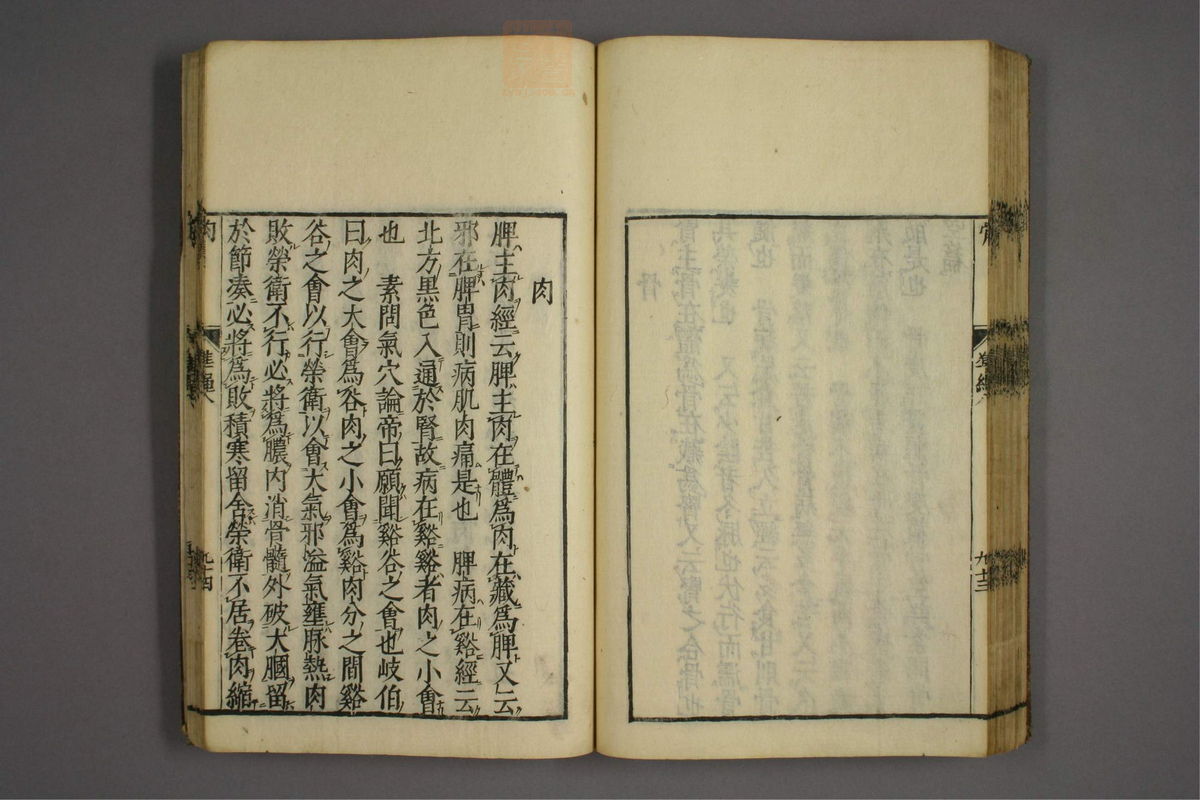 肉
脾主肉經云脾主肉在體爲肉在藏爲脾又云
邪在脾胃則病肌肉痛是也　脾病在谿經云
北方黒色入通於腎故病在谿谿者肉之小會
也　素問氣穴論帝曰願聞谿谷之會也岐伯
曰肉之大會爲谷肉之小會爲谿肉分之間谿
谷之會以行榮衛以會大氣邪溢氣壅脉熱肉
敗榮衛不行必將爲膿内消骨髓外破大膕留
於節湊必將爲敗積寒留舍榮衛不居卷肉縮
肉
九十四
九十三